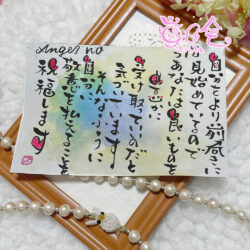 Angel no
自分をより前向きに
見始めているので
あなたは良いものを
受け取ていのだと
気づいています
そんなふうに
自分に
敬意を払えることを
祝福します